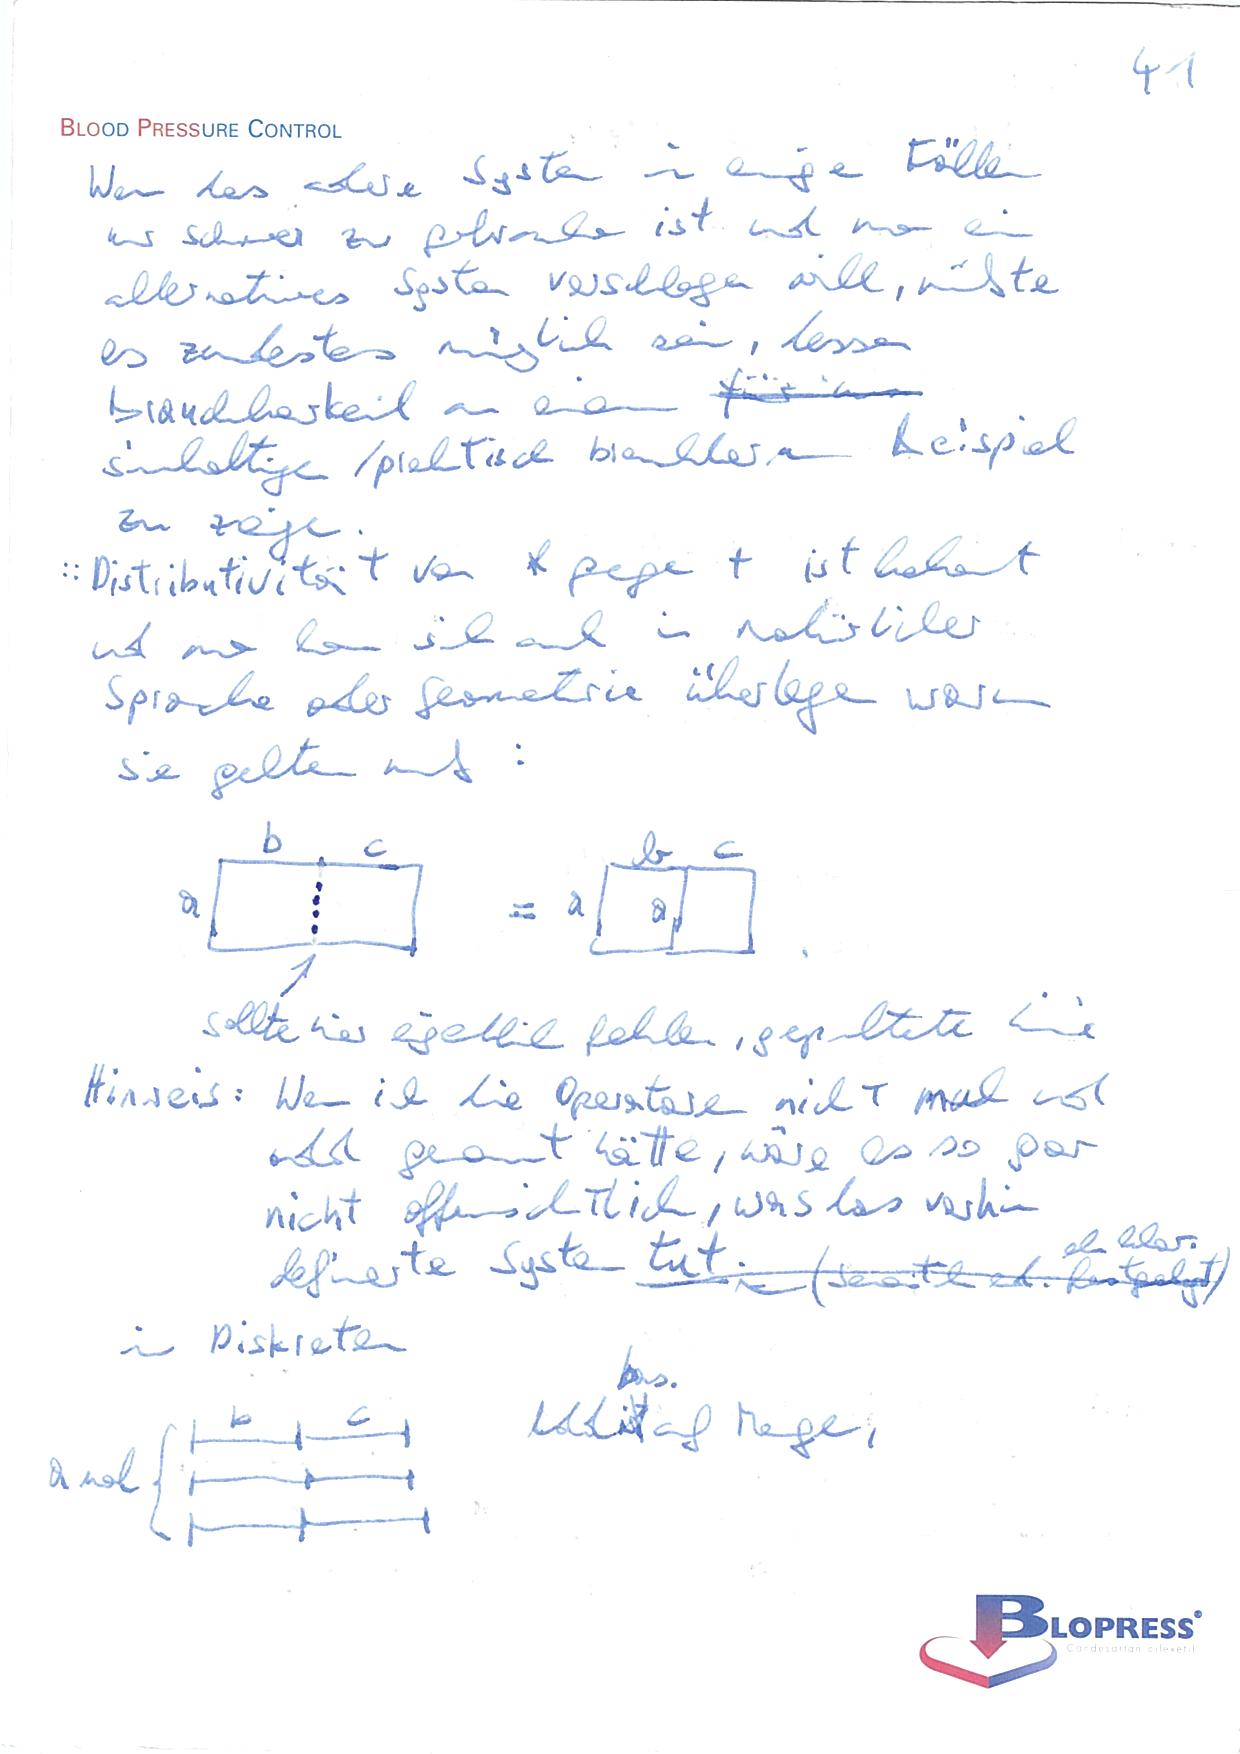 41
BLOOD PRESSURE CONTROL
Wenn das andere System in einigen Fällen
nur schwer zu gebrauchen ist und man ein
alternatives System vorschlagen will, müßte
es zumindestens möglich sein, dessen
Brauchbarkeit an einem
sinnhaltigen / praktisch brauchbaren Beispiel
zu zeigen.
:: Distributivität von * gegen + ist bekannt
und man kann sich auch in natürlicher
Sprache oder Geometrie überlegen warum
sie gelten muß :
b c b c
a = a a
sollte hier eigentlich fehlen, gespaltete Linie
Hinweis: Wenn ich die Operatoren nicht mul und
add genannt hätte, wäre es so gar
nicht offensichtlich, was das vorhin
eh klar.
definierte System tut.
in Diskreten
bas.
Addit auf Menge,
b c
a mal
BLOPRESS®
Candesartan cilexetil